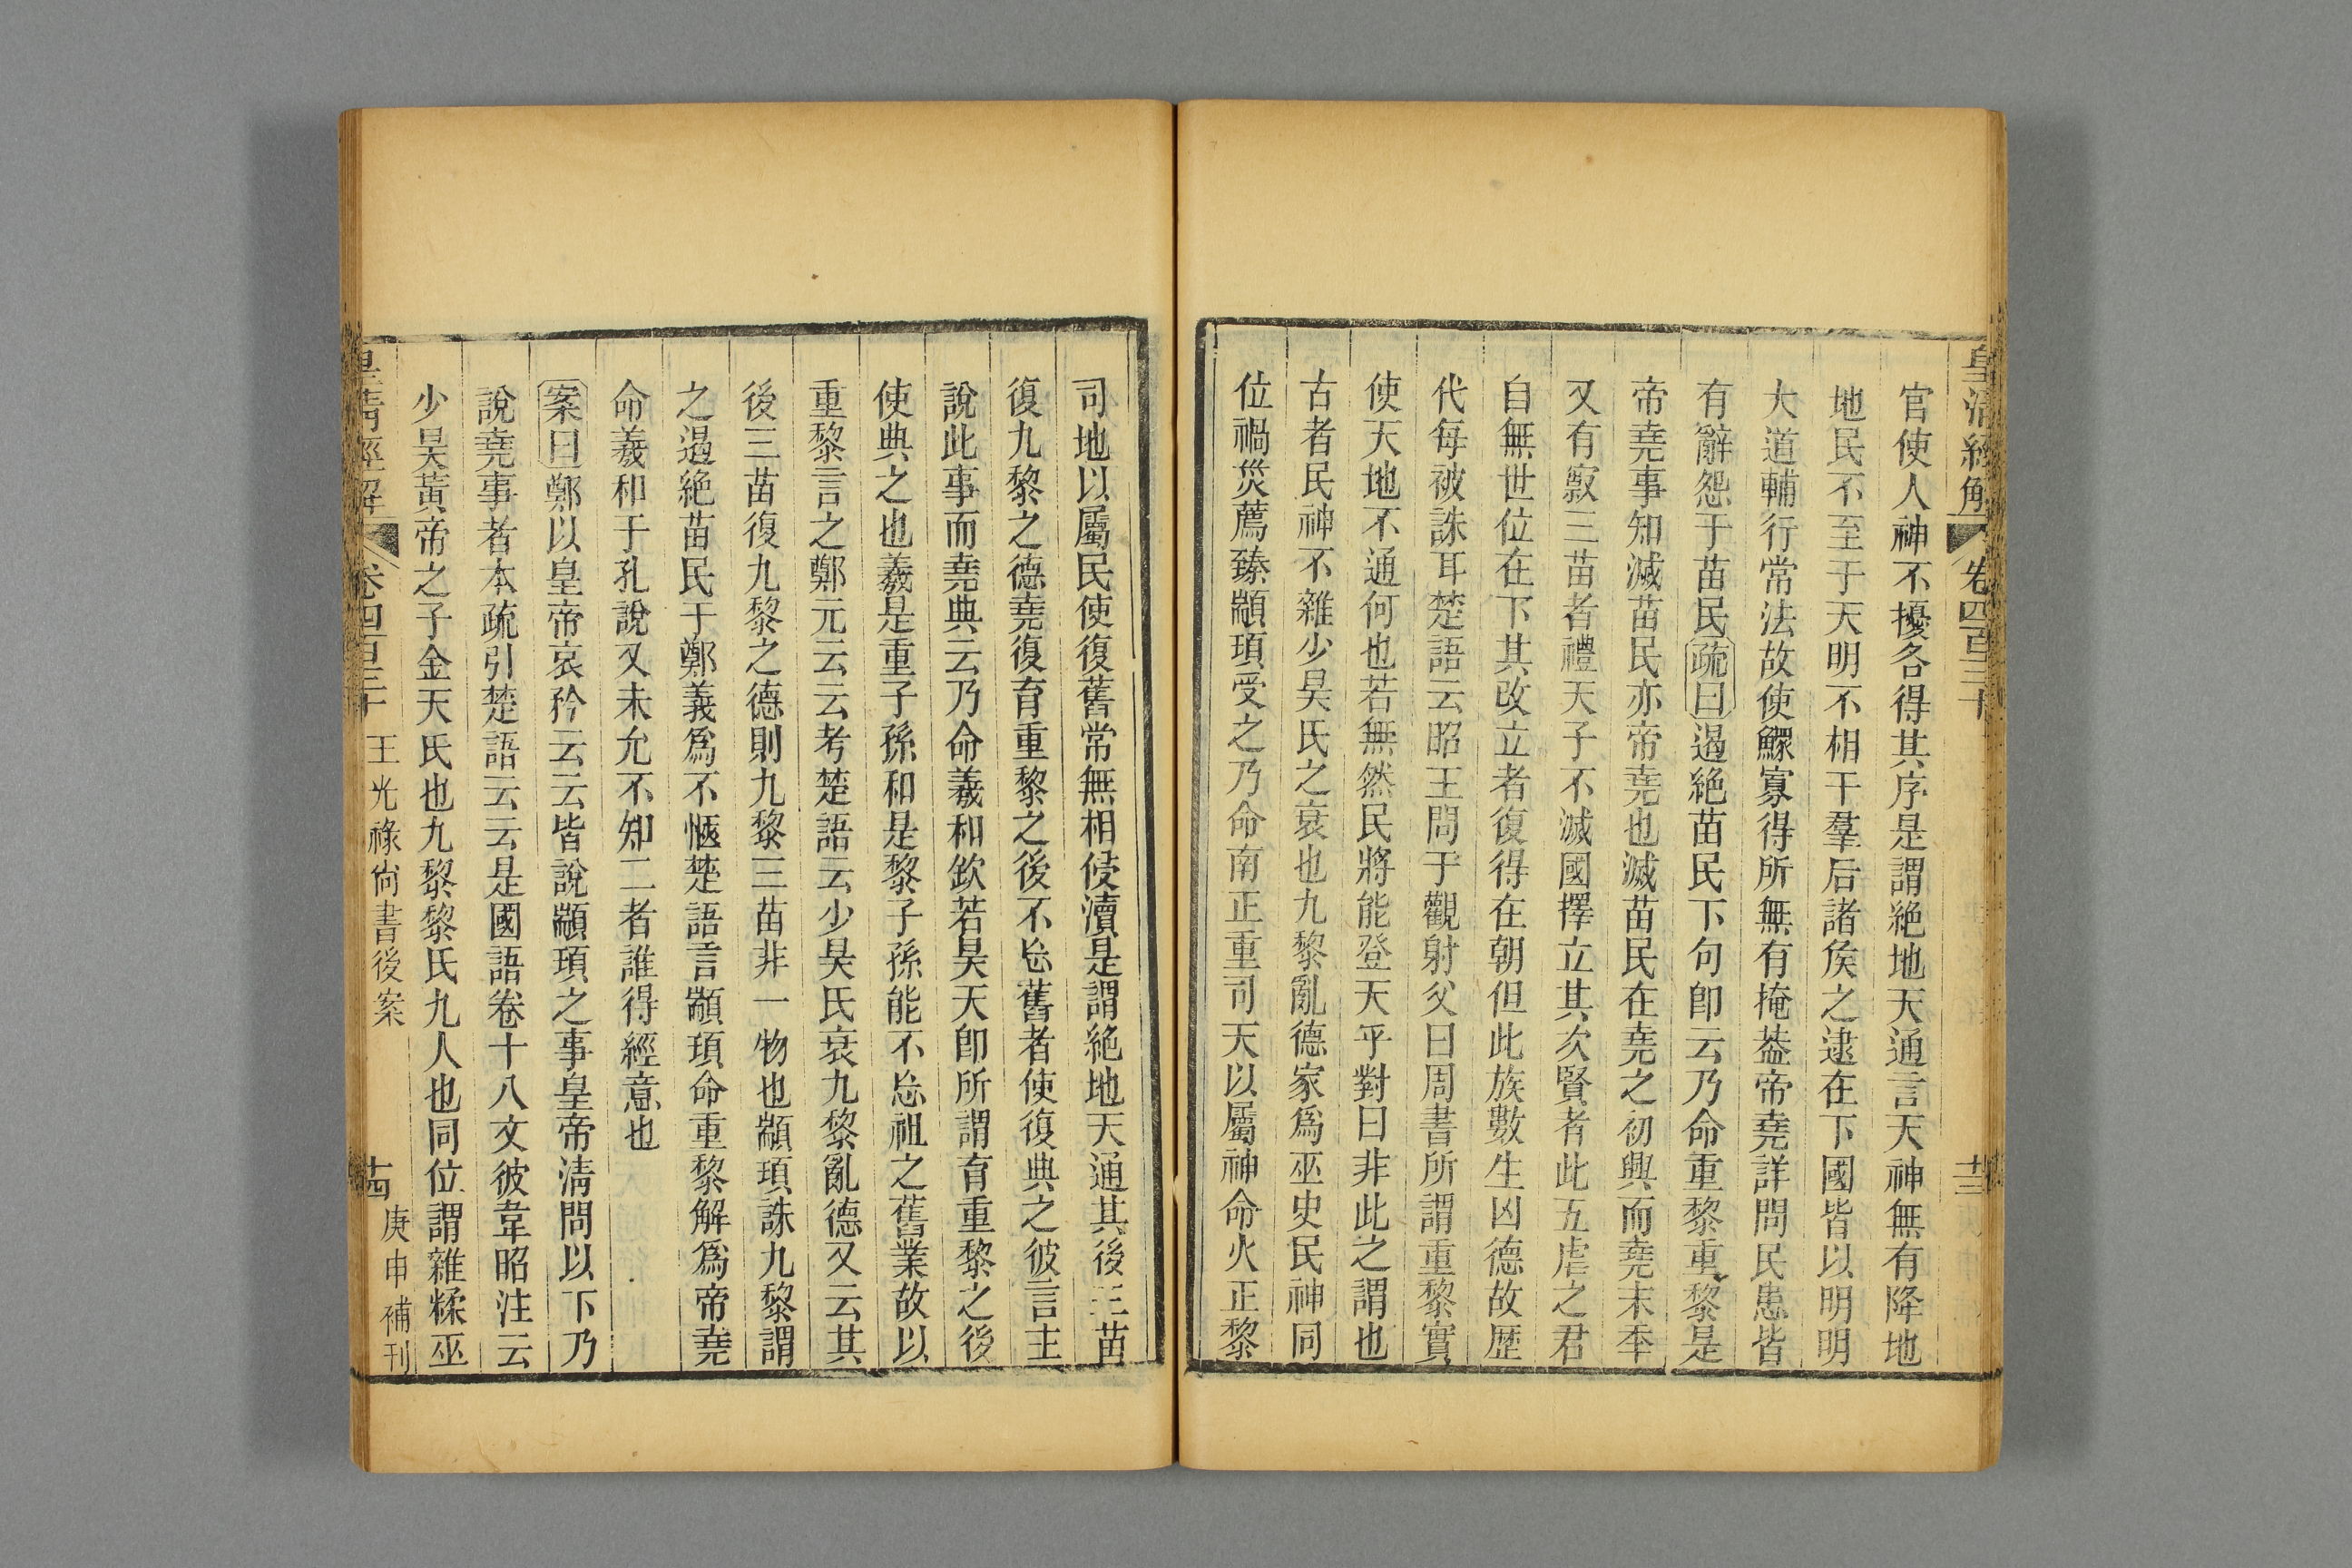 皇清經解 卷四百三十 十三
官使人神不擾各得其序是謂絕地天通言天神無有降地
地民不至于天明不相干羣后諸侯之逮在下國皆以明明
大道輔行常法故使鰥寡得所無有掩葢帝堯詳問民患皆
有辭怨于苗民疏曰遏絕苗民下句卽云乃命重黎重黎是
帝堯事知滅苗民亦帝堯也滅苗民在堯之初興而堯末年
又有竄三苗者禮天子不滅國擇立其次賢者此五虐之君
自無世位在下其改立者復得在朝但此族數生凶德故歷
代每被誅耳楚語云昭王問于觀射父曰周書所謂重黎實
使天地不通何也若無然民將能登天乎對曰非此之謂也
古者民神不雜少昊氏之衰也九黎亂德家爲巫史民神同
位禍災薦臻顓頊受之乃命南正重司天以屬神命火正黎
司地以屬民使復舊常無相侵瀆是謂絕地天通其後三苗
復九黎之德堯復育重黎之後不忘舊者使復典之彼言主
說此事而堯典云乃命羲和欽若昊天卽所謂育重黎之後
使典之也羲是重子孫和是黎子孫能不忘祖之舊業故以
重黎言之鄭元云云考楚語云少昊氏衰九黎亂德又云其
後三苗復九黎之德則九黎三苗非一物也顓頊誅九黎謂
之遏絕苗民于鄭義爲不愜楚語言顓頊命重黎解爲帝堯
命羲和于孔說又未允不知二者誰得經意也
案曰鄭以皇帝哀矜云云皆說顓頊之事皇帝淸問以下乃
說堯事者本疏引楚語云云是國語卷十八文彼韋昭注云
少昊黃帝之子金天氏也九黎黎氏九人也同位謂雜糅巫
皇清經解 卷四百三十 王光祿尙書後案 十四 庚申補刊